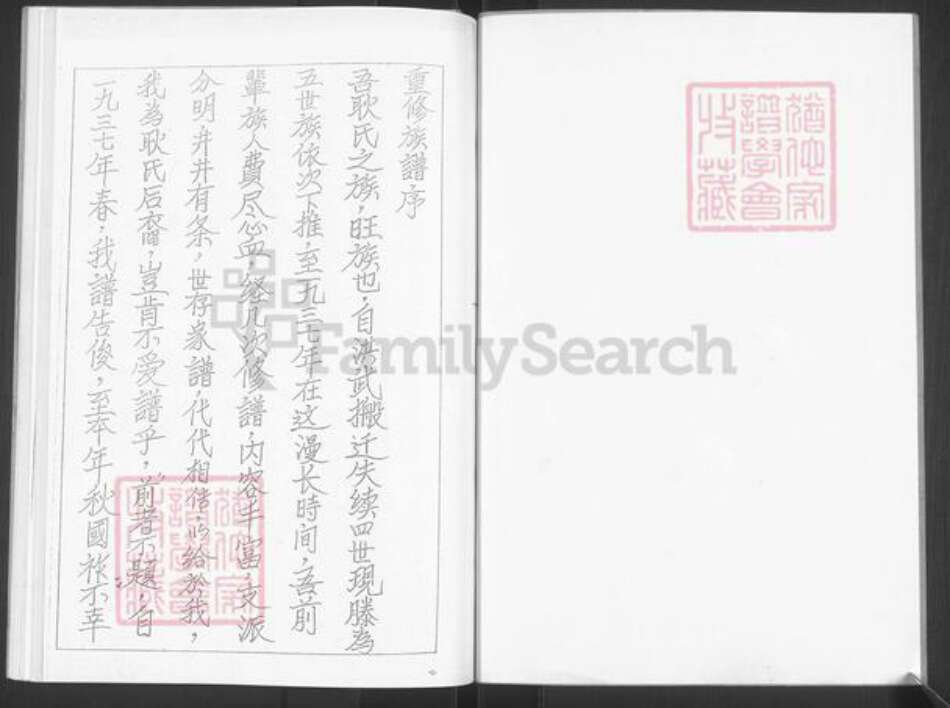 重修族譜序
吾耿氏之族，旺族也，自洪武搬迁失续四世現滕為
五世族依次下推，至一九三七年在这漫长時间，吾前
輩族人費尽心血，经几次修譜，内容丰富，支派
分明井井有条，世存家譜，代代相传，以给於我，
我為耿氏后裔，豈肯不爱譜乎，前者不題，自
一九三七年春，我譜告俊，至本年秋國祚不幸
猶他家
譜學會
收藏
FamilySearch